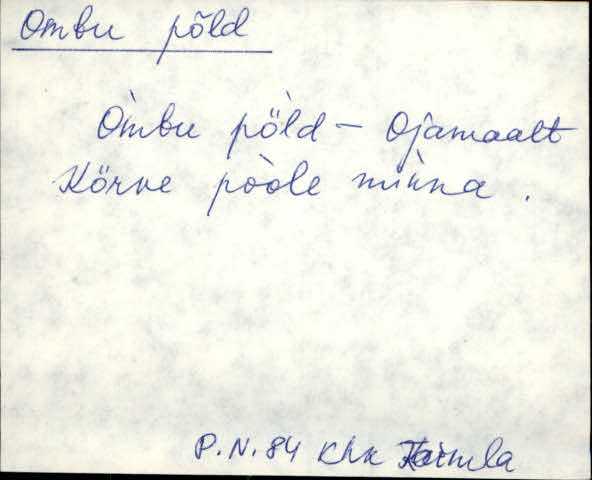 Ombu põld
Òmbu pö̀ld – Ojamaalt
Körve pòole mìnna.
P.N. 84 Khk Kärmla